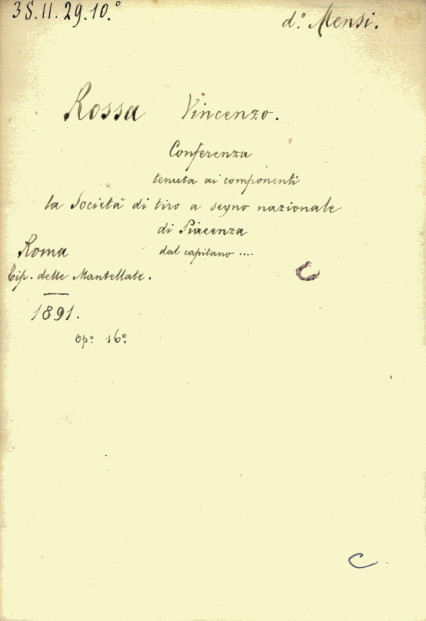 3S.II.29.10.°
d.° Mensi.
Rossa Vincenzo.
Conferenza
tenuta ai componenti
la Società di tiro a segno nazionale
di Piacenza
dal capitano ....
Roma
Tip. delle Mantellate.
1891.
op.° 16.°
C
C